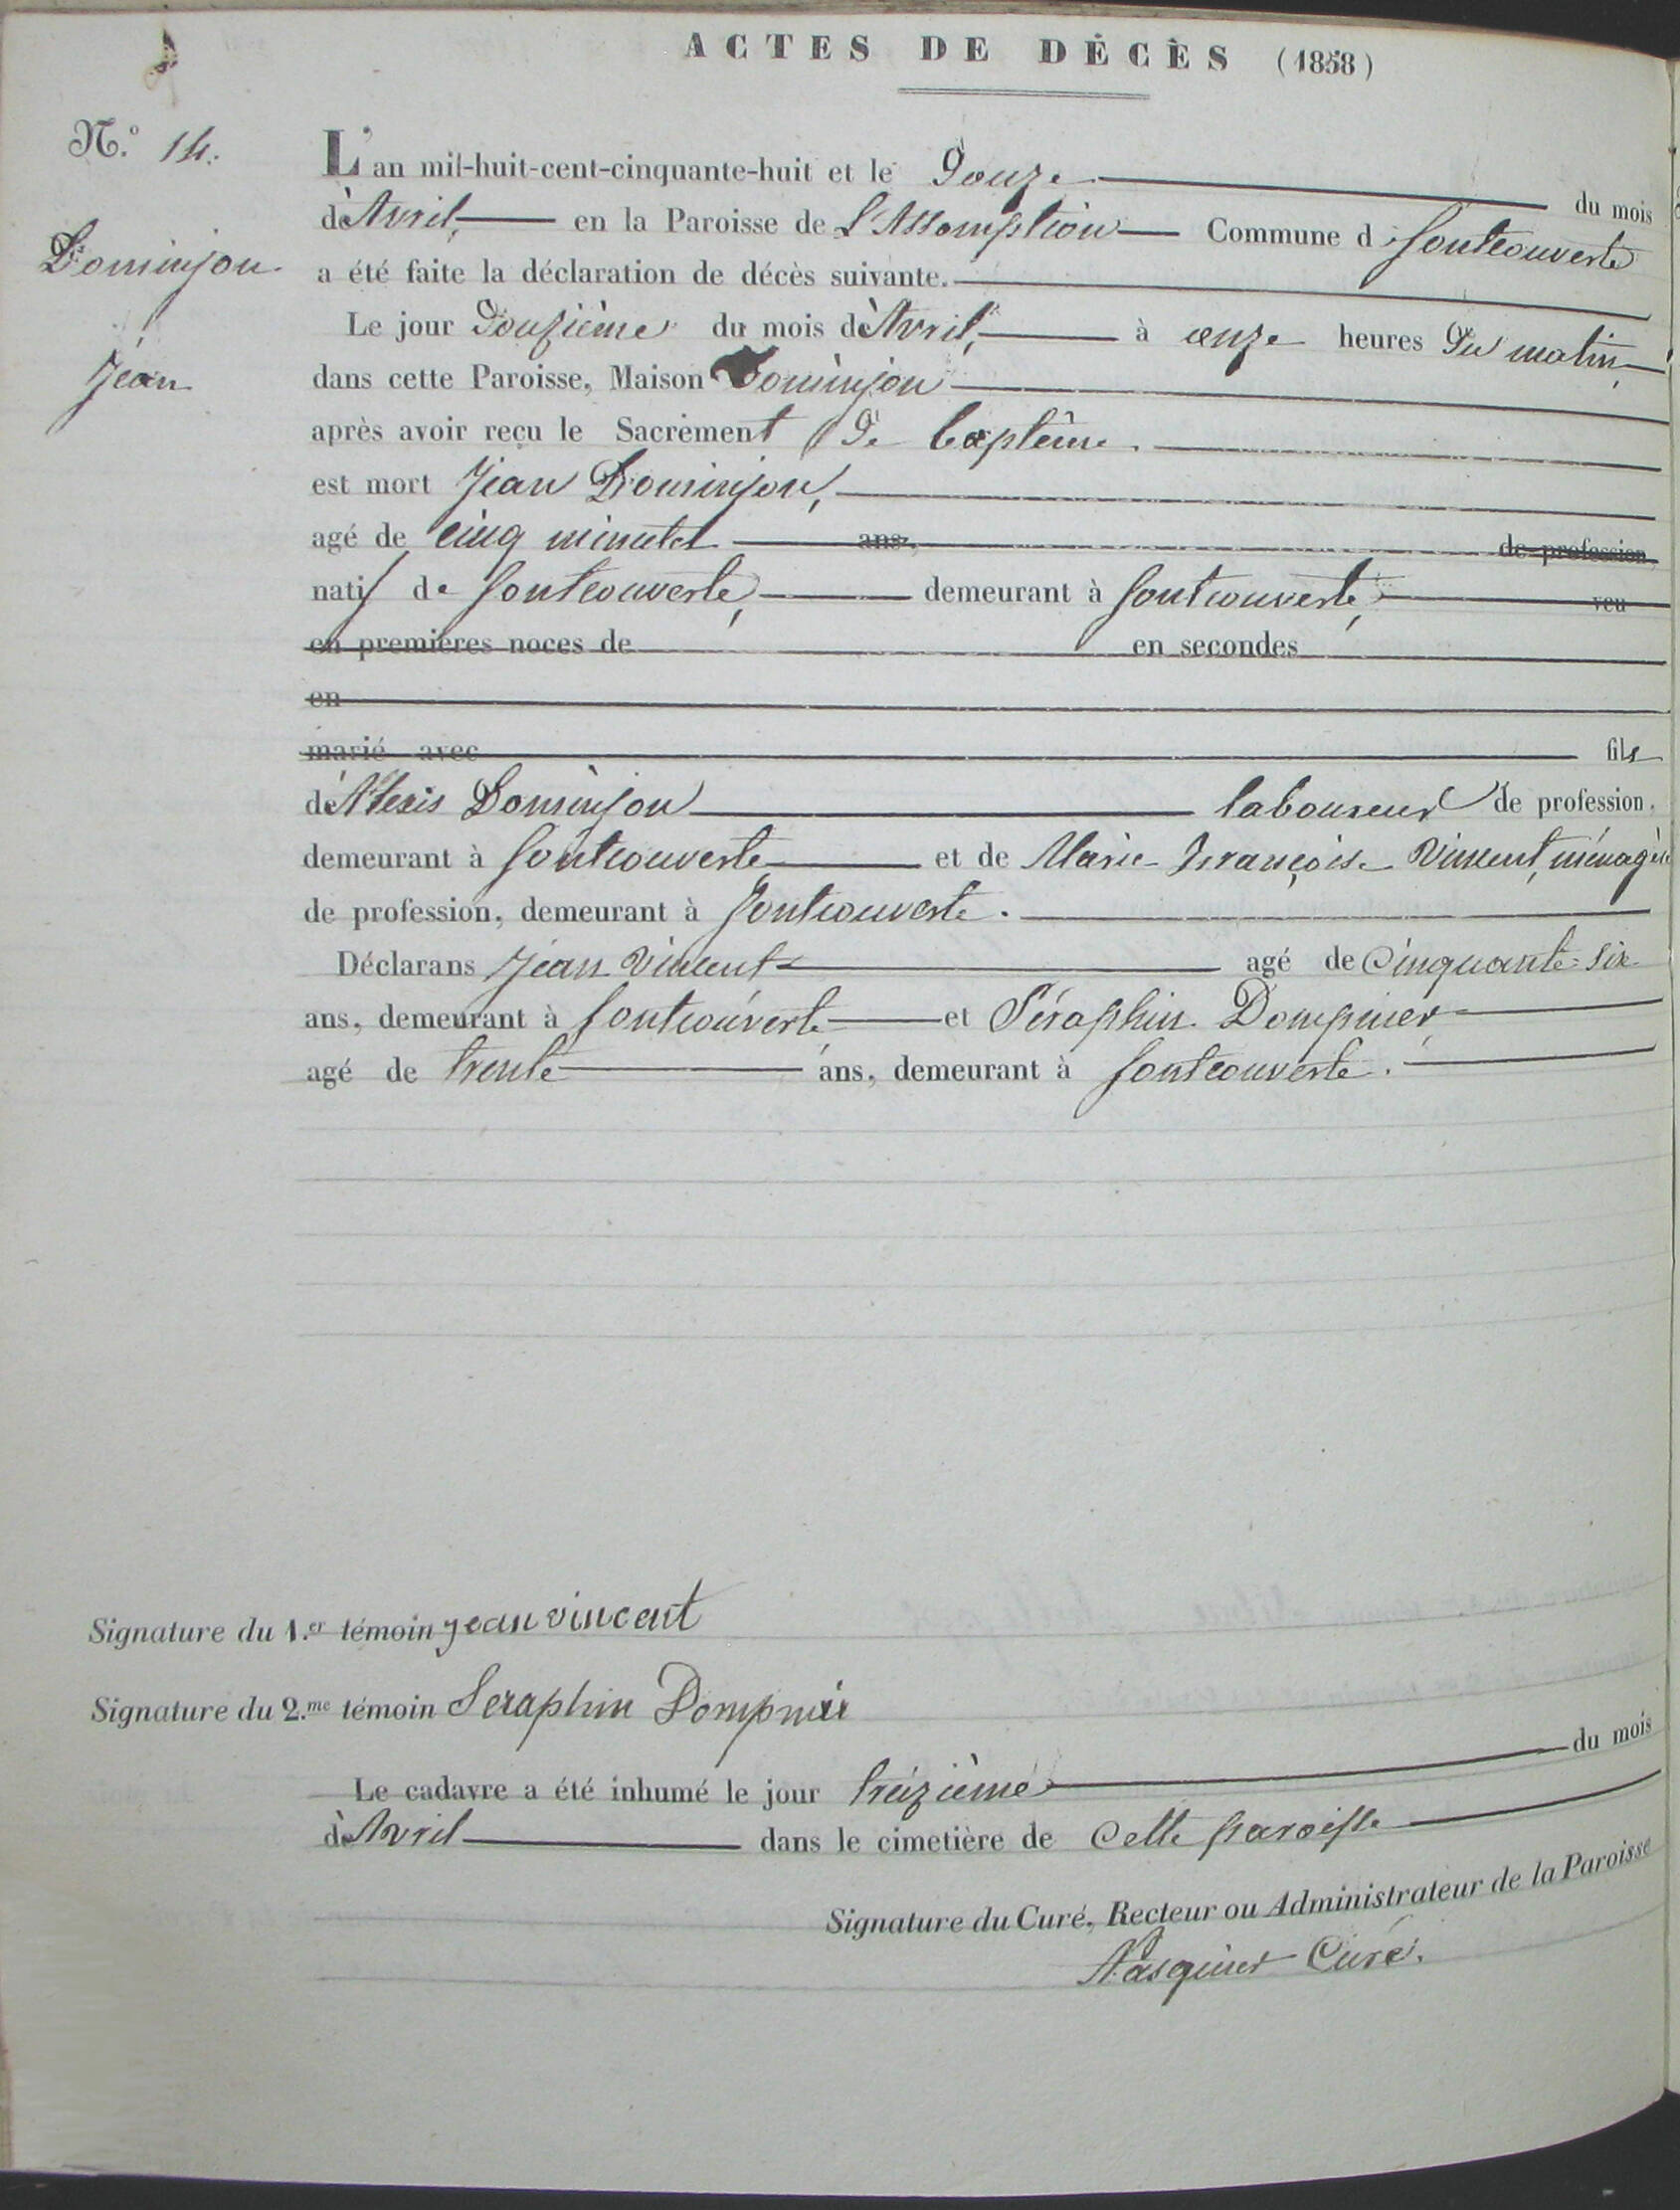 ACTES DE DÉCÈS (1858)
N.o 14.
Dominjon
Jean
L'an mil-huit-cent-cinquante-huit et le Douze du mois
d'Avril, en la Paroisse de L'Assomption Commune de fontcouverte
a été faite la déclaration de décès suivante.
Le jour Douzième du mois d'Avril, à onze heures Du matin,
dans cette Paroisse, Maison Dominjon
après avoir reçu le Sacrement De baptême.
est mort Jean Dominjon,
agé de cinq minutes ans, de profession
natif de fontcouverte, demeurant à fontcouverte, veu
en premières noces de en secondes
en
marié avec fils
d'Alexis Dominjon laboureur de profession,
demeurant à fontcouverte et de Marie Françoise Vincent, ménagère
de profession, demeurant à fontcouverte.
Déclarans Jean Vincent agé de Cinquante-six
ans, demeurant à fontcouverte et Séraphin Dompnier,
agé de trente ans, demeurant à fontcouverte.
Signature du 1.er témoin jean vincent
Signature du 2.me témoin Seraphin Dompnier
Le cadavre a été inhumé le jour treizième du mois
d'Avril dans le cimetière de Cette paroisse
Signature du Curé, Recteur ou Administrateur de la Paroisse
Curé.